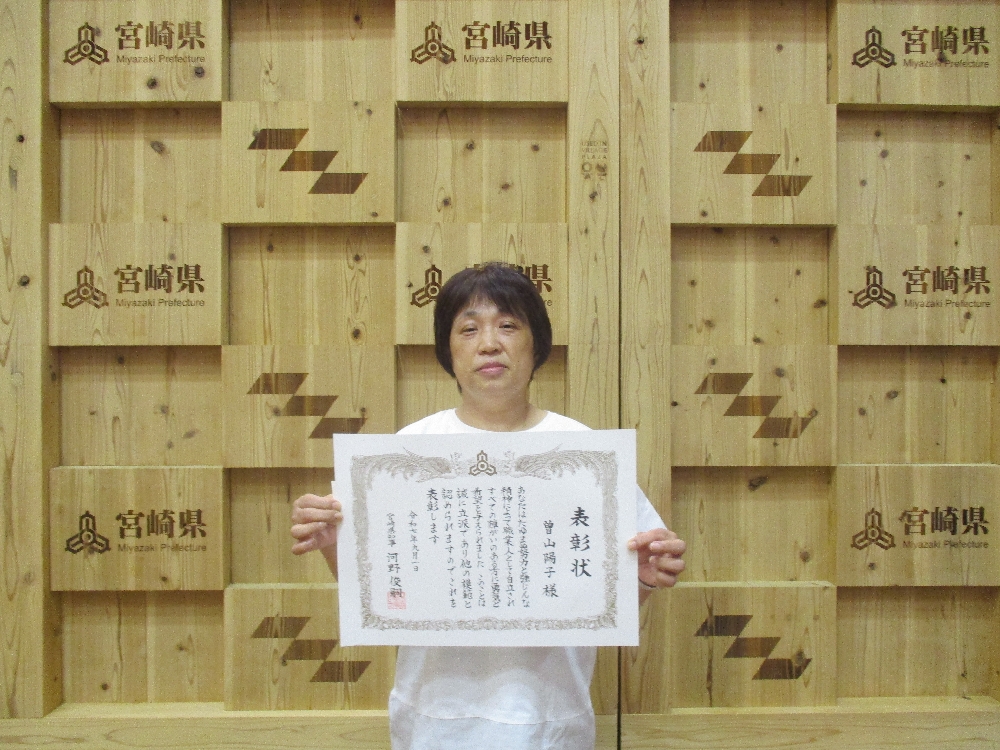 宮崎県
Miyazaki Prefecture
宮崎県
Miyazaki Prefecture
宮崎県
Miyazaki Prefecture
宮崎県
Miyazaki Prefecture
宮崎県
Miyazaki Prefecture
宮崎県
Miyazaki Prefecture
宮崎県
Miyazaki Prefecture
表彰状
曽山陽子様
あなたはたゆまぬ努力と強じんな
精神によって職業人として自立され
すべての障がいのある方に勇気と
希望を与えられました このことは
誠に立派であり他の模範と
認められますのでこれを
表彰します
令和七年九月一日
宮崎県知事 河野俊嗣